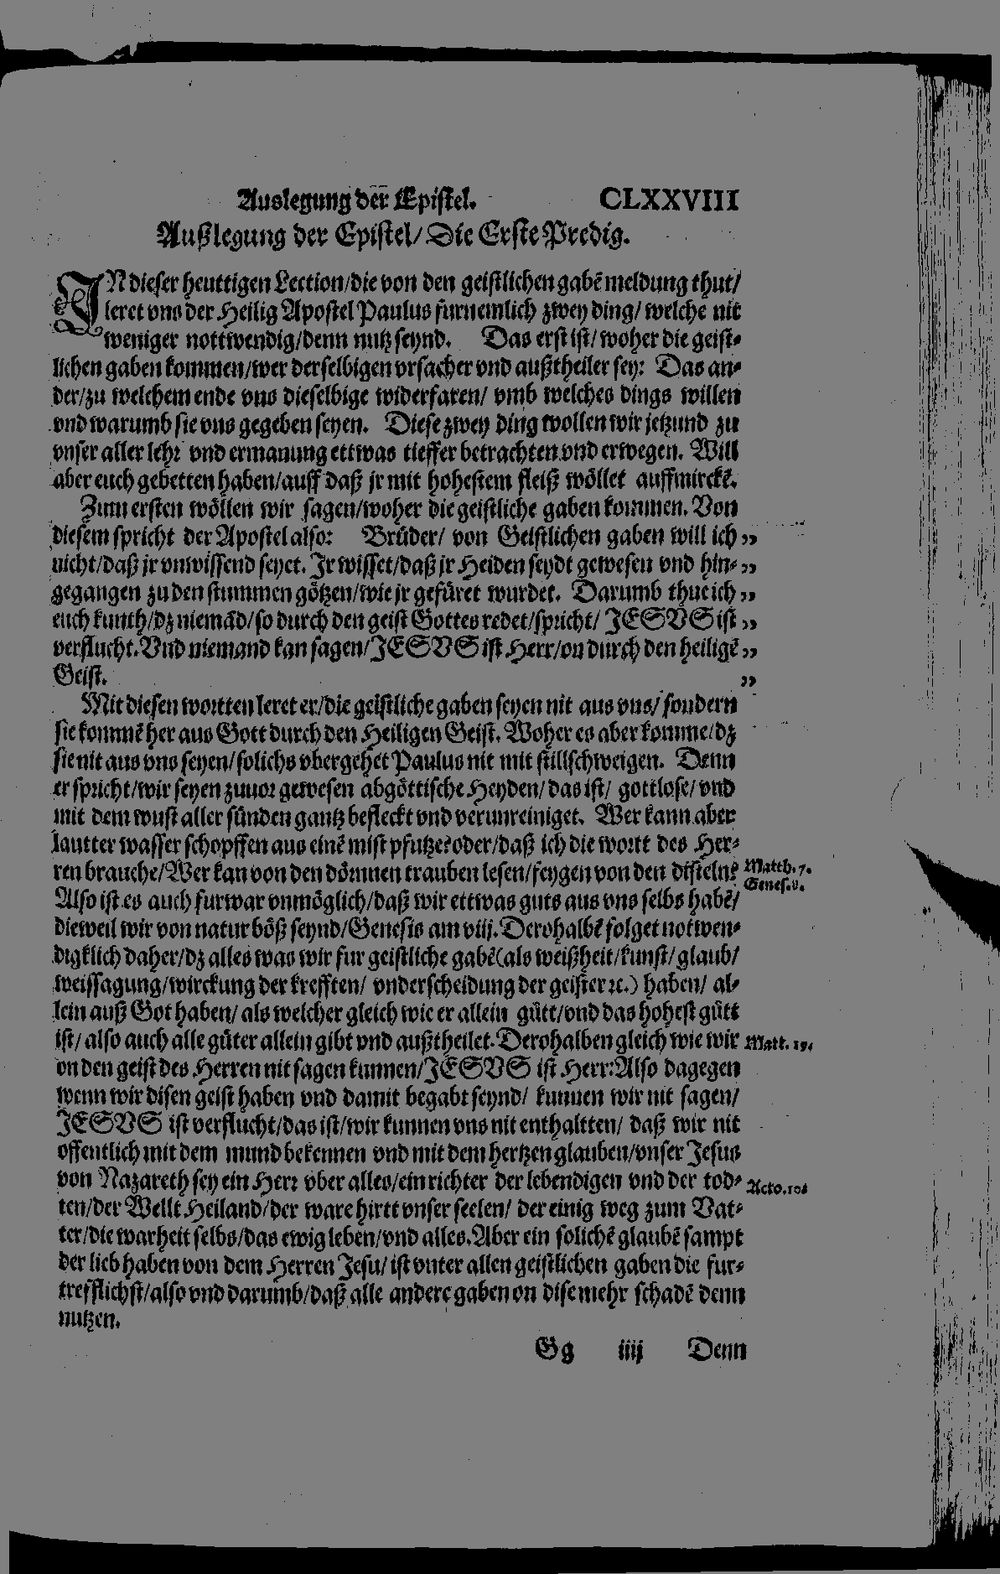 Auslegung der Epistel. CLXXVIII
Außlegung der Epistel/ Die Erste Predig.
IN dieser heuttigen Lection/die von den geistlichen gabē meldung thut/
leret vns der Heilig Apostel Paulus furnemlich zwey ding/ welche nit
weniger nottwendig/denn nutz seynd. Das erst ist/ woher die geist-
lichen gaben kommen/wer derselbigen vrsacher vnd außtheiler sey: Das an-
der/zu welchem ende vns dieselbige widerfaren/ vmb welches dings willen
vnd warumb sie vns gegeben seyen. Diese zwey ding wollen wir jetzund zu
vnser aller lehr vnd ermanung ettwas tieffer betrachten vnd erwegen. Will
aber euch gebetten haben/auff daß jr mit hohestem fleiß wöllet auffmirckē.
Zum ersten wöllen wir sagen/woher die geistliche gaben kommen. Von
diesem spricht der Apostel also: Brüder/ von Geistlichen gaben will ich „
nicht/daß jr vnwissend seyet. Jr wisset/daß jr Heiden seydt gewesen vnd hin- „
gegangen zu den stummen götzen/wie jr gefüret wurdet. Darumb thue ich „
euch kunth/dz niemād/so durch den geist Gottes redet/spricht/ JESVS ist „
verflucht. Vnd niemand kan sagen/JESVS ist Herr/on durch den heiligē „
Geist. „
Mit diesen wortten leret er/die geistliche gaben seyen nit aus vns/ sondern
sie kommē her aus Gott durch den Heiligen Geist. Woher es aber komme/dz
sie nit aus vns seyen/solichs vbergehet Paulus nit mit stillschweigen. Denn
er spricht/wir seyen zuuor gewesen abgöttische Heyden/das ist/ gottlose/ vnd
mit dem wust aller sünden gantz befleckt vnd verunreiniget. Wer kann aber
lautter wasser schopffen aus einē mistpfutze? oder/daß ich die wortt des Her-
ren brauche/Wer kan von den dörnnen trauben lesen/feygen von den disteln? Matth. 7.
Genes. 8.
Also ist es auch furwar vnmöglich/daß wir ettwas guts aus vns selbs habē/
dieweil wir von natur böß seynd/Genesis am viij. Derohalbē folget notwen-
digklich daher/dz alles was wir fur geistliche gabē(als weißheit/kunst/glaub/
weissagung/wirckung der krefften/ vnderscheidung der geister ꝛc.) haben/ al-
lein auß Got haben/ als welcher gleich wie er allein gütt/vnd das hohest gütt
ist/ also auch alle güter allein gibt vnd außtheilet. Derohalben gleich wie wir Matt. 19.
on den geist des Herren nit sagen kunnen/JESVS ist Herr: Also dagegen
wenn wir disen geist haben vnd damit begabt seynd/ kunnen wir nit sagen/
JESVS ist verflucht/das ist/wir kunnen vns nit enthaltten/ daß wir nit
offentlich mit dem mund bekennen vnd mit dem hertzen glauben/vnser Jesus
von Nazareth sey ein Herr vber alles/ein richter der lebendigen vnd der tod- Acto. 10.
ten/der Wellt Heiland/der ware hirtt vnser seelen/ der einig weg zum Vat-
ter/die warheit selbs/das ewig leben/vnd alles. Aber ein solichē glaubē sampt
der lieb haben von dem Herren Jesu/ ist vnter allen geistlichen gaben die fur-
trefflichst/also vnd darumb/daß alle andere gaben on dise mehr schadē denn
nutzen.
Gg iiij Denn